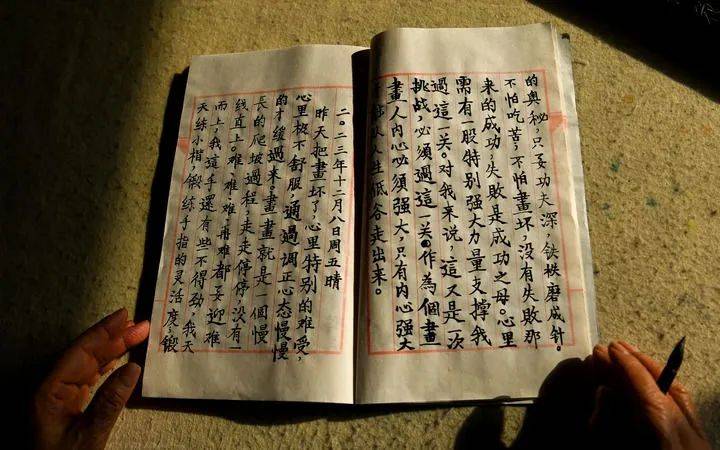 的奥秘，只要功夫深，铁秩磨成针。
不怕吃苦，不怕畫坏，没有失败那
来的成功，失败是成功之母。心里
需有一股特别强大力量支撑我
過這一关。对我来说，這又是一次
挑战，必须過這一关。作為個畫
畫人内心必须强大，只有内心强大
从人生低谷走出来。
二〇二三年十二月八日周五晴
昨天把畫坏了，心里特别的难受，
心里极不舒服，通過调正心态慢慢
的才缓過来。畫畫就是一個慢
長的爬坡過程，走走停停没有一
线直上。难、难、难，再难都要迎难
而上，我這手還有些不得劲，我天
天練小楷，鍛練手指的灵活度，鍛